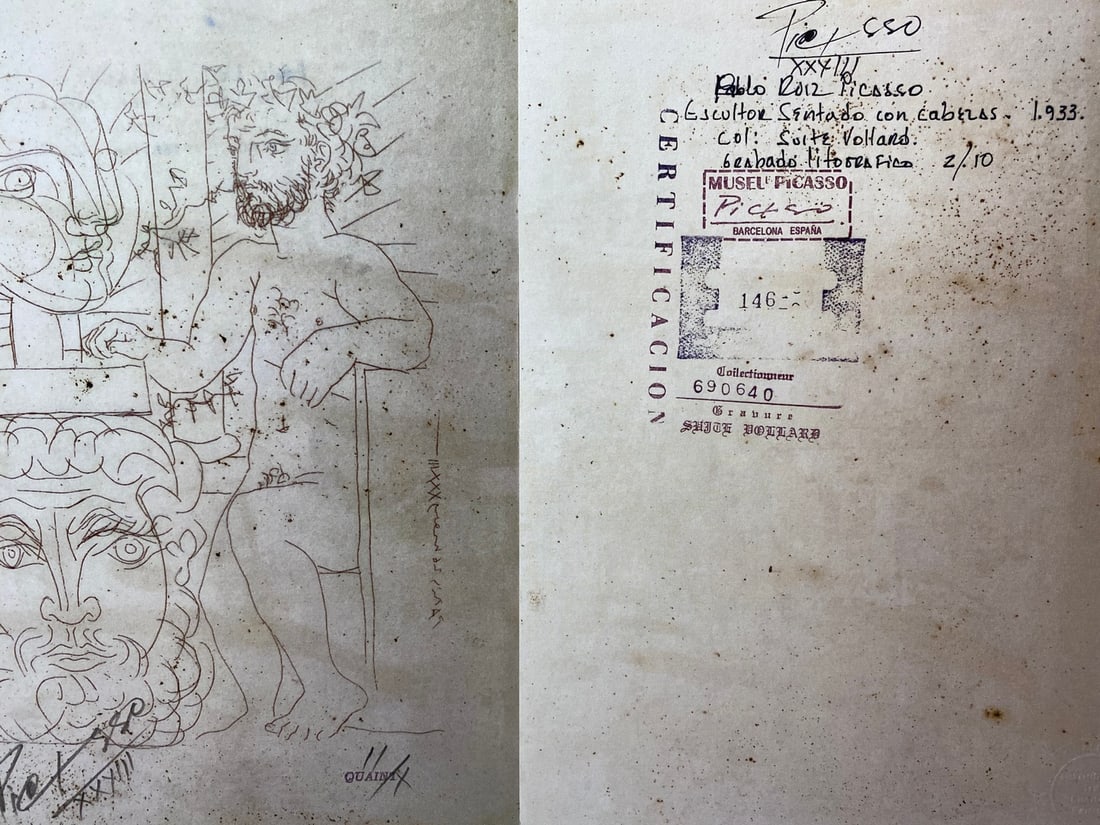 Picasso
XXXIII
QUAINT
Picasso
XXXIII
Pablo Ruiz Picasso
Escultor Sentado con cabezas - 1.933.
Col: Suite Vollard.
Grabado litografico 2/10
CERTIFICACION
MUSEU PICASSO
Picasso
BARCELONA ESPAÑA
146-
Collectionneur
690640
Gravure
SUITE VOLLARD